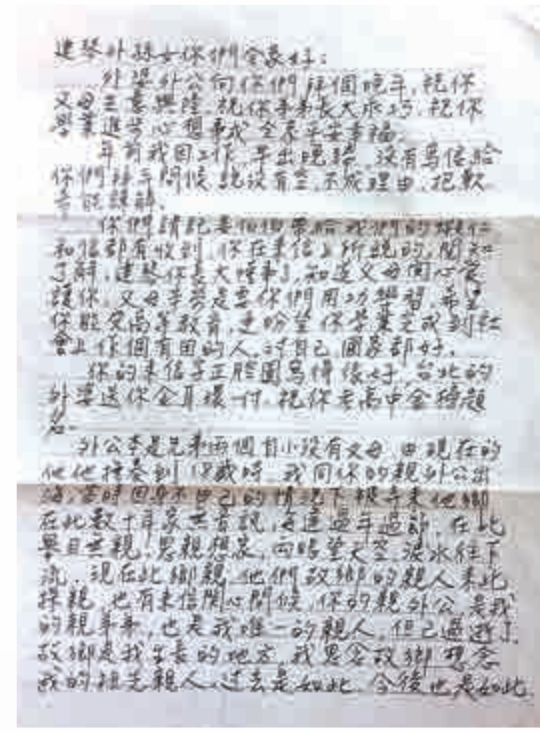 建琴外孫女你們全家好：
外婆外公向你們拜個晚年，祝你
父母生意興隆，祝你弟弟長大成功，祝你
學業進步心想事成全家平安幸福。
年前我因工作，早出晚歸，沒有寫信給
你們拜年問候，說沒有空，不成理由，抱歉
你們請託 帶給我們的
和信都有收到，你在來信上所說的，閱知
了解，建琴你長大懂事了，知道父母關心愛
護你，父母辛勞是要你們用功學習，希望
你能受高等教育，更盼望你學業完成到社
會上作個有用的人，對自己國家都好。
你的來信字正腔圓寫得很好，台北的
外婆送你金耳環一付，祝你考高中金榜題
名。
外公本是兄弟兩個自小沒有父母，由現在的
他 撫養到18歲時，我同你的親外公出
當時因身不由己的情況下被 來他鄉
在此數十年家無音訊，每逢過年過節，在此
舉目無親，思親想家，向照望天空淚水往下
流，現在此鄉親，他們故鄉的親人來此
探親，也有來信關心問候，你的親外公，是我
的親弟弟，也是我唯一的親人，但已過逝了，
故鄉是我生長的地方，我思念故鄉想念
我的祖先親人，過去是如此，今後也是如此，